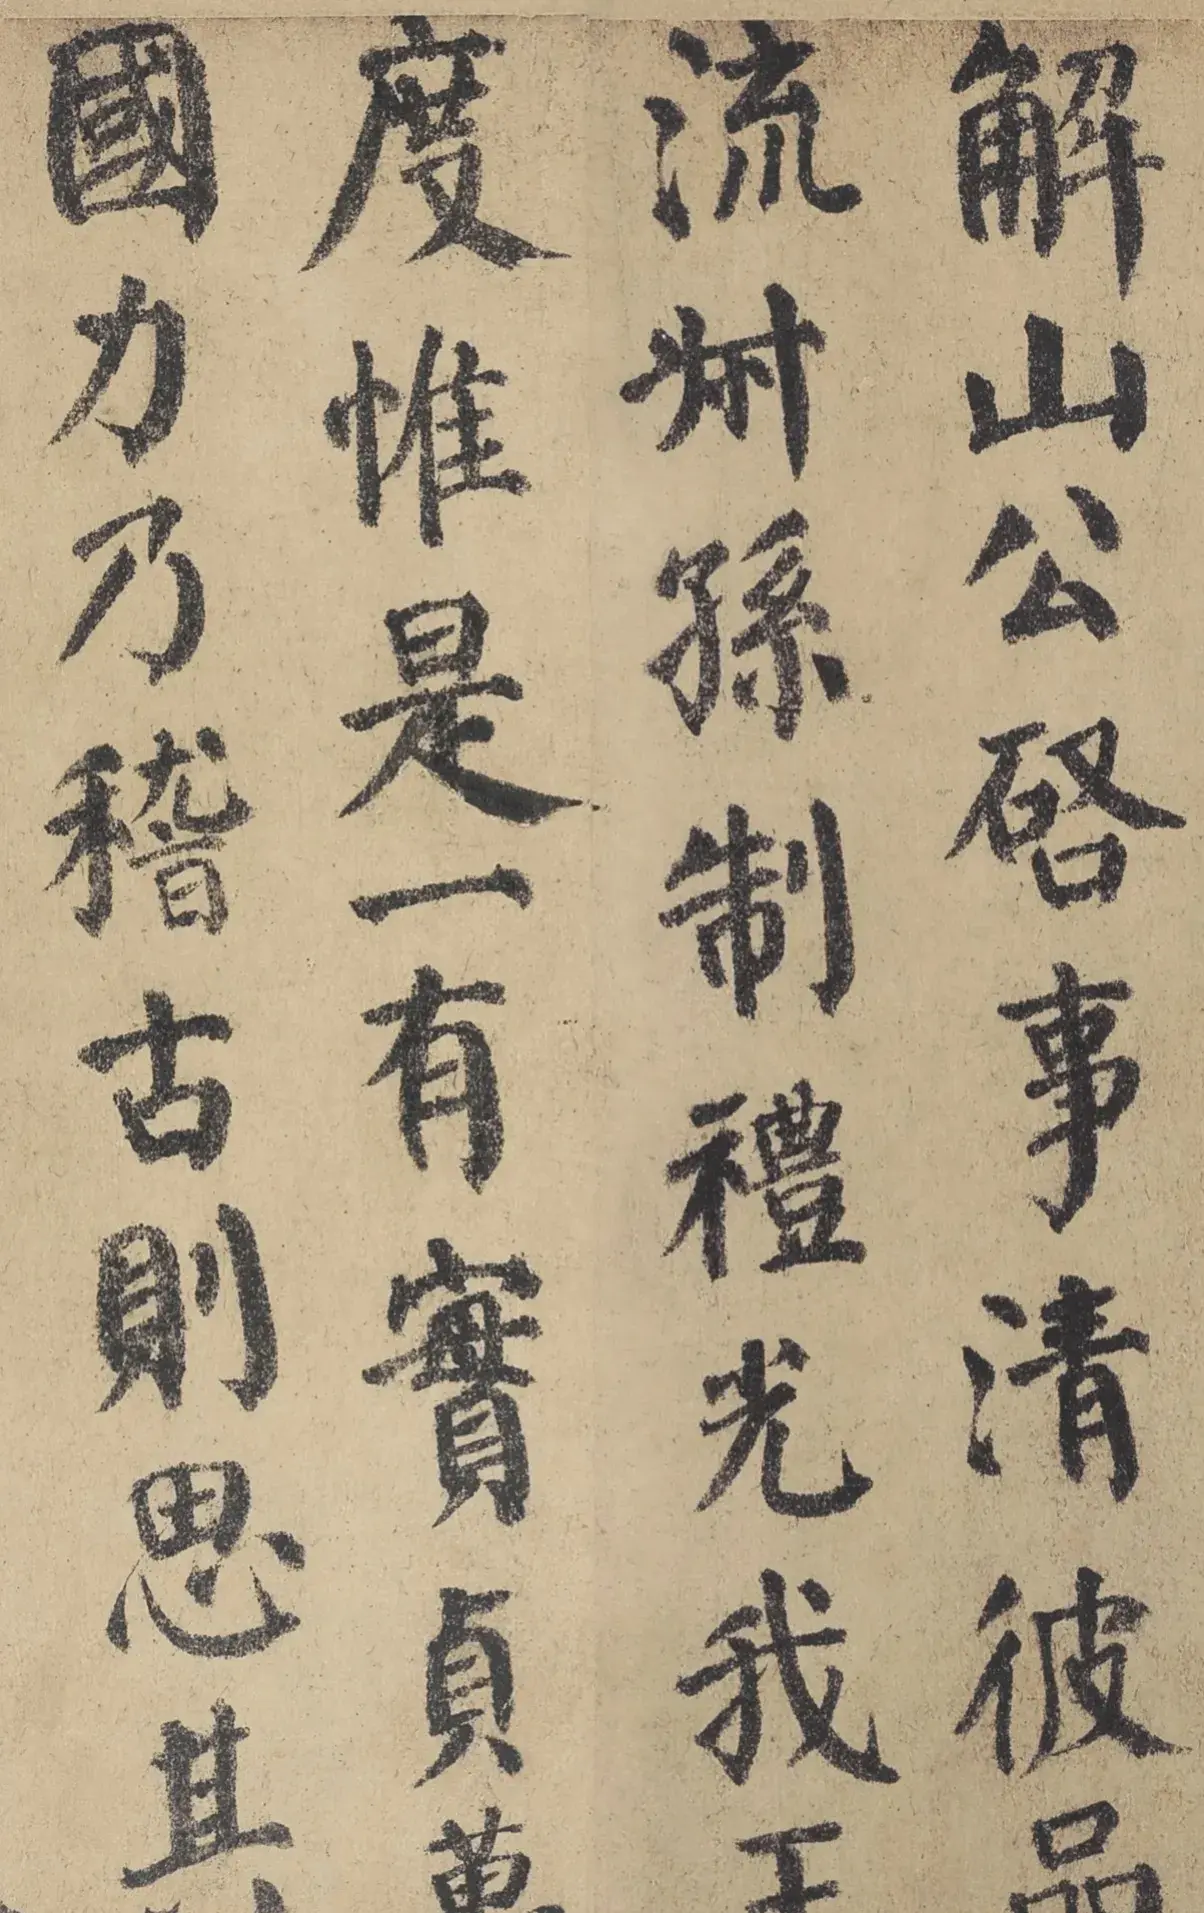 解山公啓事清彼品
流叔孫制禮光我王
度惟是一有實貞萬
國力乃稽古則思其